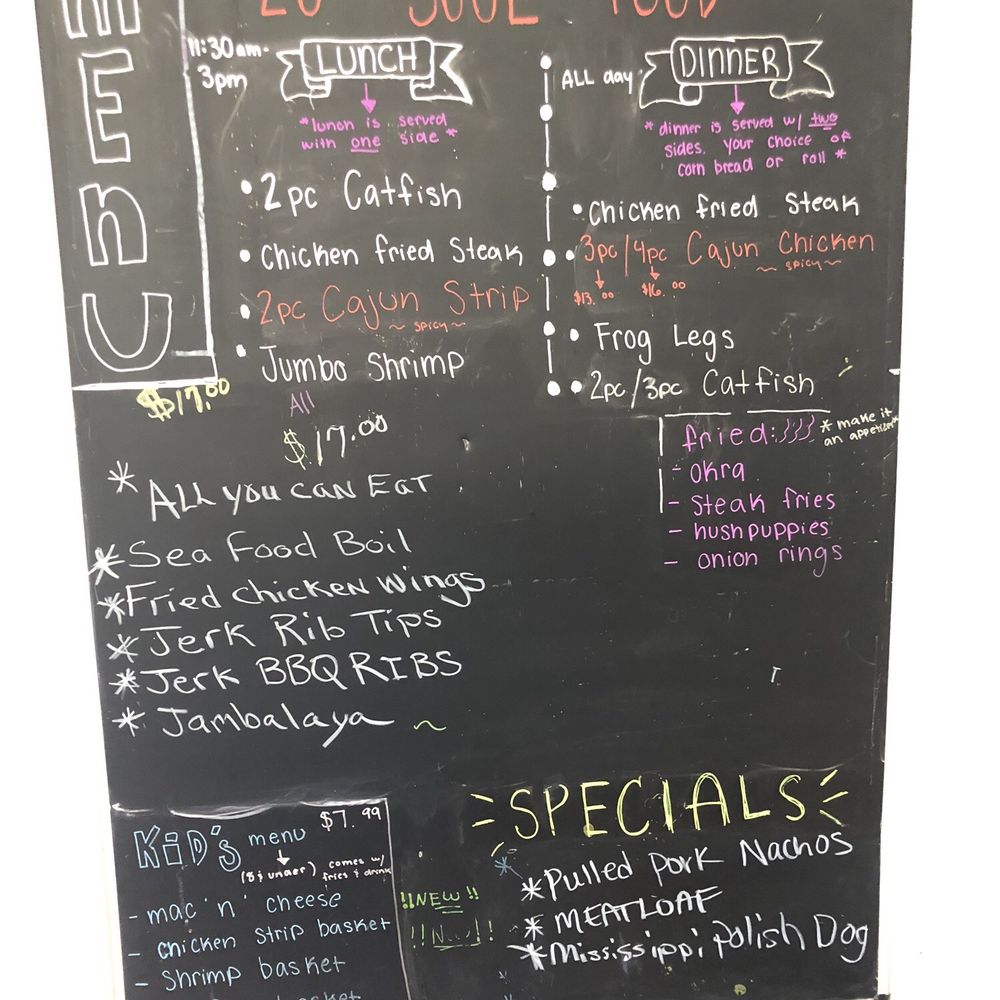 MENU
SOUL FOOD
11:30am-
3pm
LUNCH
*lunch is served
with one side*
• 2pc Catfish
• Chicken fried Steak
• 2pc Cajun Strip
~ spicy ~
• Jumbo Shrimp
$17.00
All
$17.00
* ALL you CAN EAT
*Sea Food Boil
*Fried chicken wings
*Jerk Rib Tips
*Jerk BBQ RIBS
* Jambalaya ~
ALL day
DINNER
* dinner is served w/ two
sides. your choice of
corn bread or roll *
• Chicken fried Steak
• 3pc/4pc Cajun Chicken
~ spicy ~
$13.00 $16.00
• Frog Legs
• 2pc/3pc Catfish
fried:
* make it
an appetizer*
- okra
- steak fries
- hushpuppies
- onion rings
KiD's menu $7.99
(8 & under) comes w/
fries & drink
- mac 'n' cheese
- chicken strip basket
- Shrimp basket
!!NEW!!
SPECIALS
*Pulled pork Nachos
* MEATLOAF
*Mississippi polish Dog